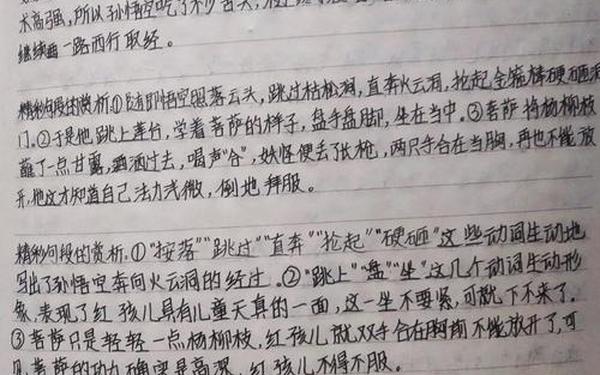 术高强，所以孙悟空吃了不少苦头，
继续西一路西行取经。
精彩句段的赏析.①随即悟空照落云头，跳过枯松涧，直奔火云洞，抢起金箍棒硬砸洞
门.②于是他跳上莲台，学着菩萨的样子，盘手盘脚，坐在当中.③菩萨将杨柳枝
蘸了一点甘露，洒过去，唱声“合”，妖怪便丢了长枪，两只手合在当胸，再也不能放
开，他这才知道自己法力微，倒地拜服。
精彩句段的赏析.①“按落”“跳过”“直奔”“抢起”“硬砸”这些动词生动地
写出了孙悟空奔向火云洞的经过.②“跳上”“盘”“坐”这几个动词生动形
象，表现了红孩儿具有儿童天真的一面，这一坐不要紧，可就下不来了.
③菩萨只是轻轻一点杨柳枝，红孩儿就双手合在胸前不能放开了，可
见菩萨的功力确实是高深，红孩儿不得不服。